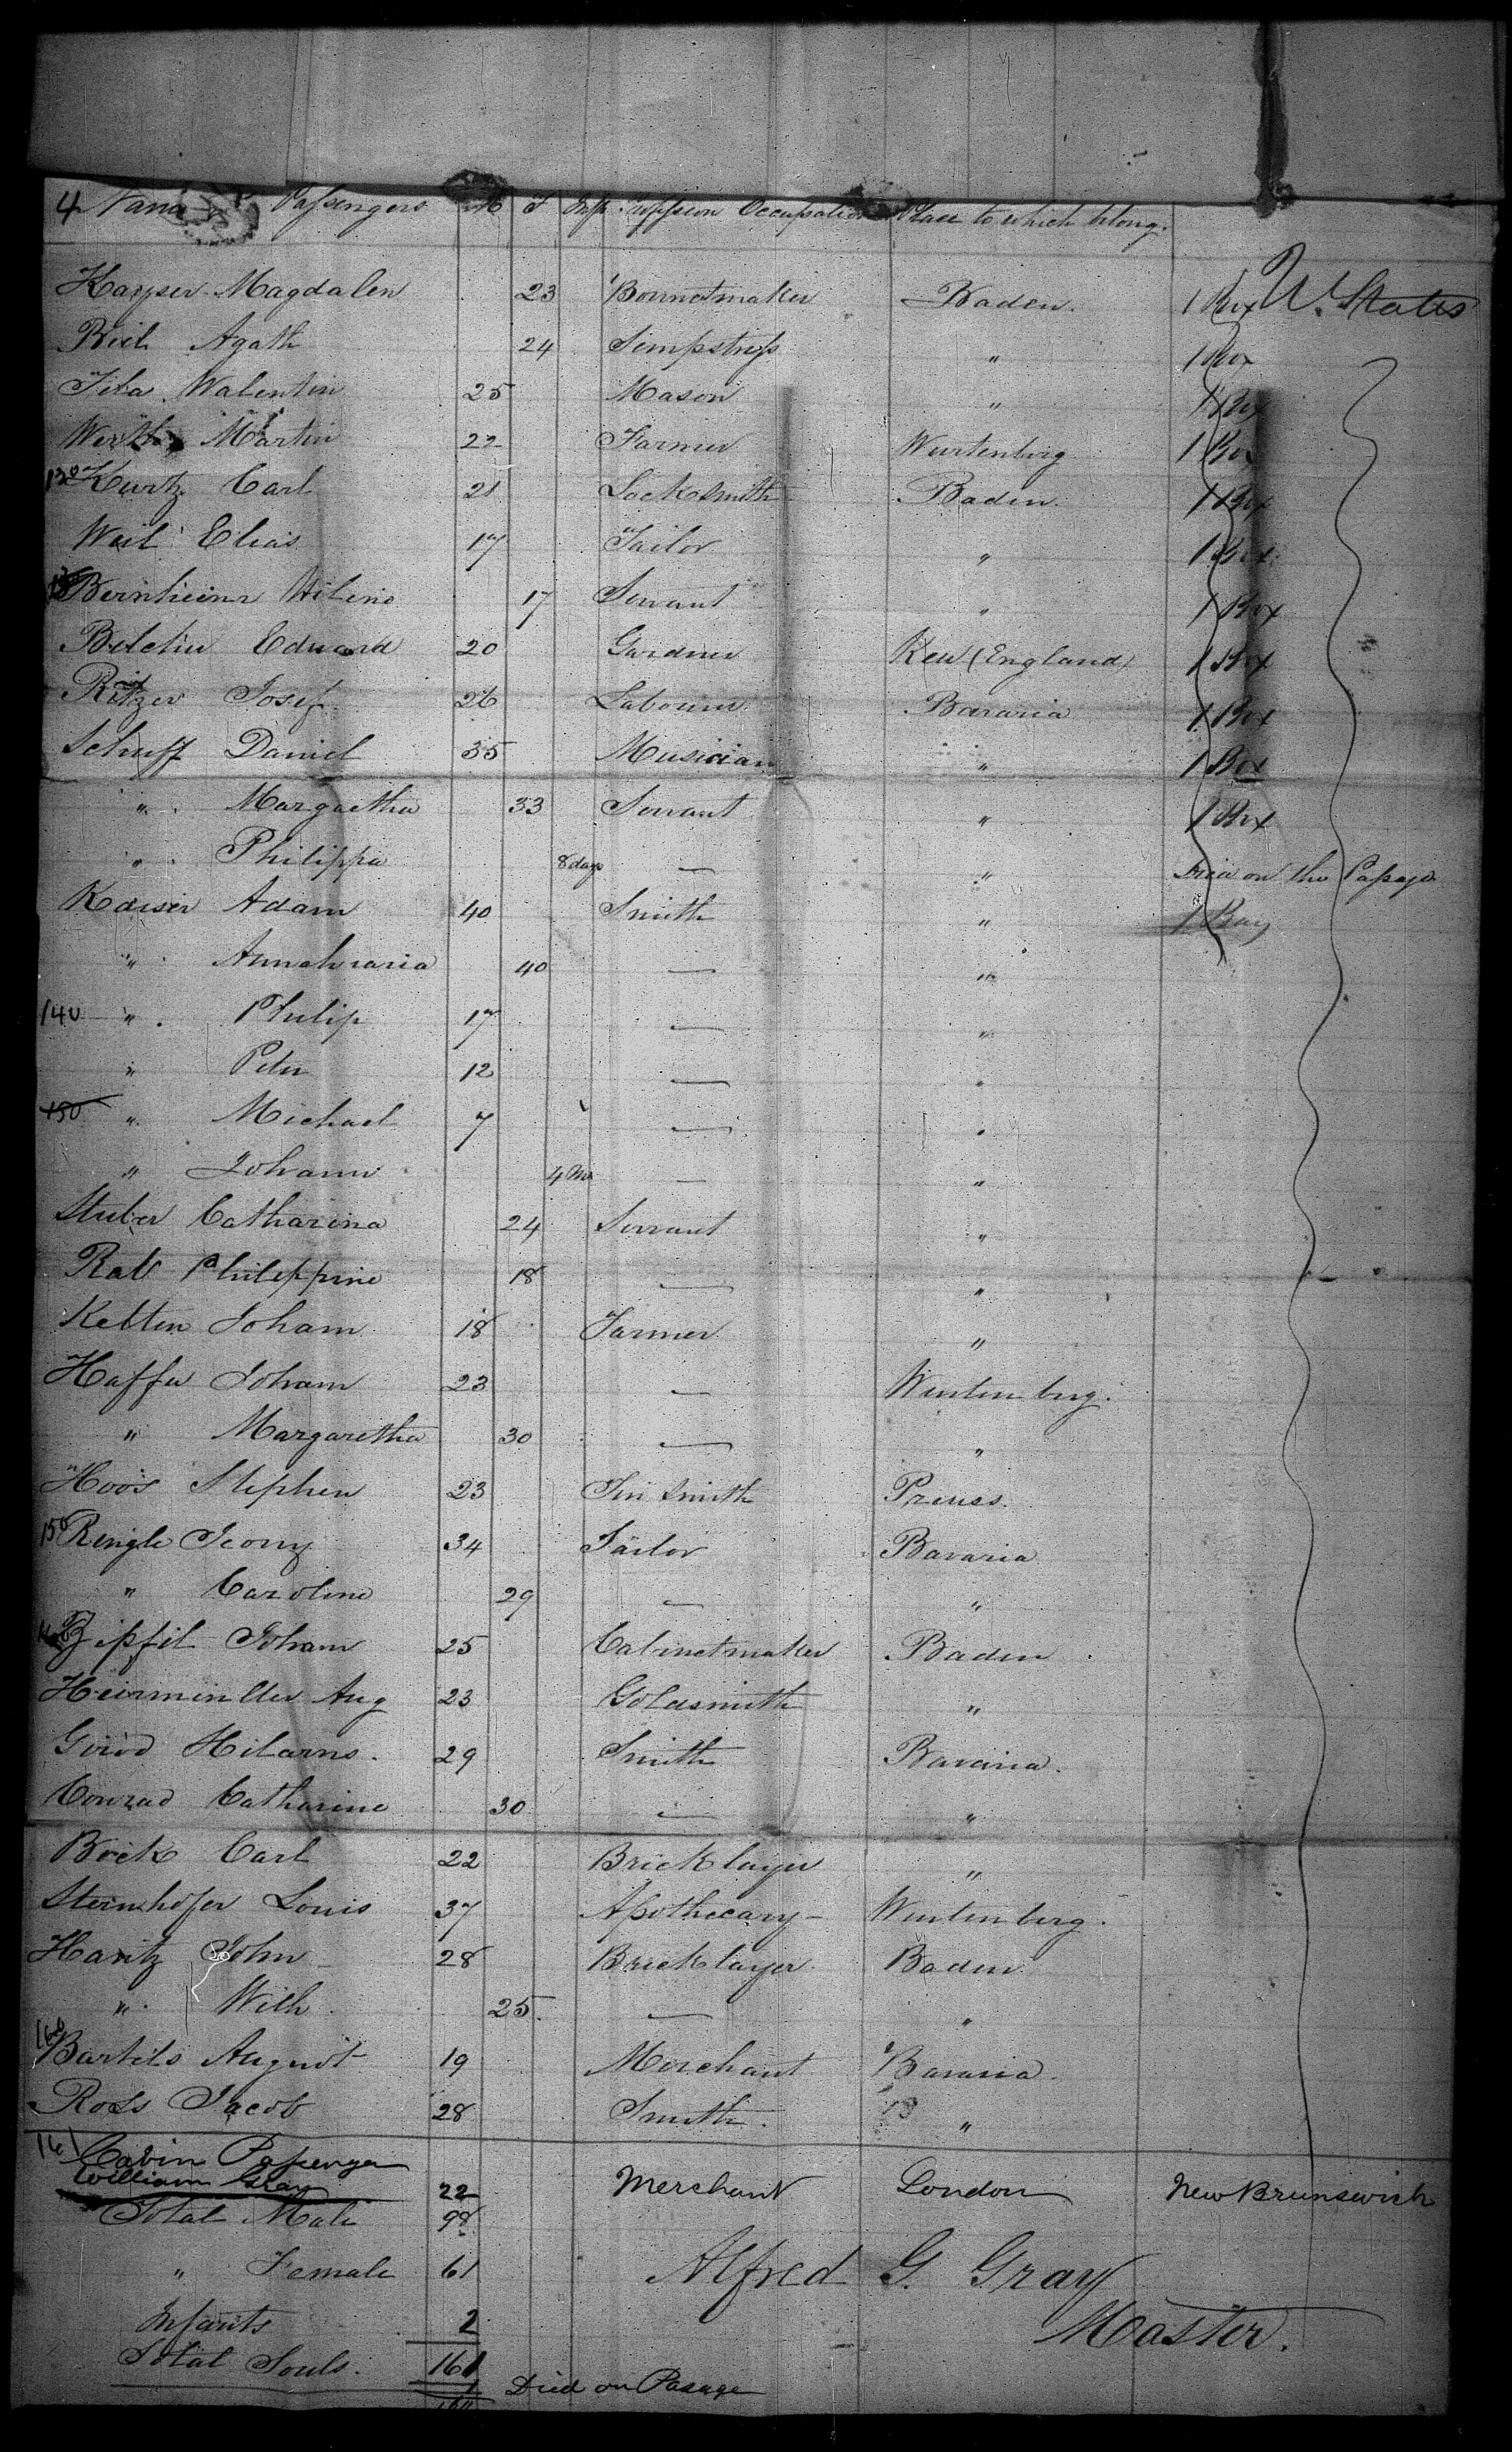 4 Passengers M F Inf. Occupation Place to which belong.
Kayser Magdalen 23 Bonnetmaker Baden. 1 Box U. States
Agath 24 Sempstress " 1 Box
Walentin 25 Mason " 1 Box
Martin 22 Farmer Wurtenberg 1 Box
130 Kurtz Carl 21 Locksmith Baden. 1 Box
Weil Elias 17 Tailor " 1 Box
Bernheimr Helene 17 Servant " 1 Box
Edward 20 Gardner Kew (England) 1 Box
Josef 26 Labourer Bavaria 1 Box
Schuff Daniel 35 Musician " 1 Box
" Margaetha 33 Servant " 1 Box
" Philippa 8 days — " Died on the Passage
Kaiser Adam 40 Smith " 1 Bag
" Annahmaria 40 — "
140 " Philip 17 — "
" Peter 12 — "
150 " Michael 7 — "
" Johann 4 Mo — "
Stuber Catharina 24 Servant "
Philippine 18 — "
Johann 18 Farmer "
Johann 23 — Wurtemberg.
" Margaretha 30 — "
Stephen 23 Tin Smith Preuss.
150 Ringle Georg 34 Tailor Bavaria
" Caroline 29 — "
Zipfil Johann 25 Cabinetmaker Baden
Aug 23 Goldsmith "
29 Smith Bavaria.
Conrad Catharine 30 — "
Carl 22 Bricklayer "
Louis 37 Apothecary Wurtemberg.
John 28 Bricklayer Baden
" Wilh 25. — "
160 Bartels August 19 Merchant Bavaria.
Jacob 28 Smith. "
161 Cabin Passenger
William Gray 22 Merchant London New Brunswick
Total Male 98
" Female 61 Alfred G. Gray
Infants 2 Master.
Total Souls. 161
1 Died on Pasage
160